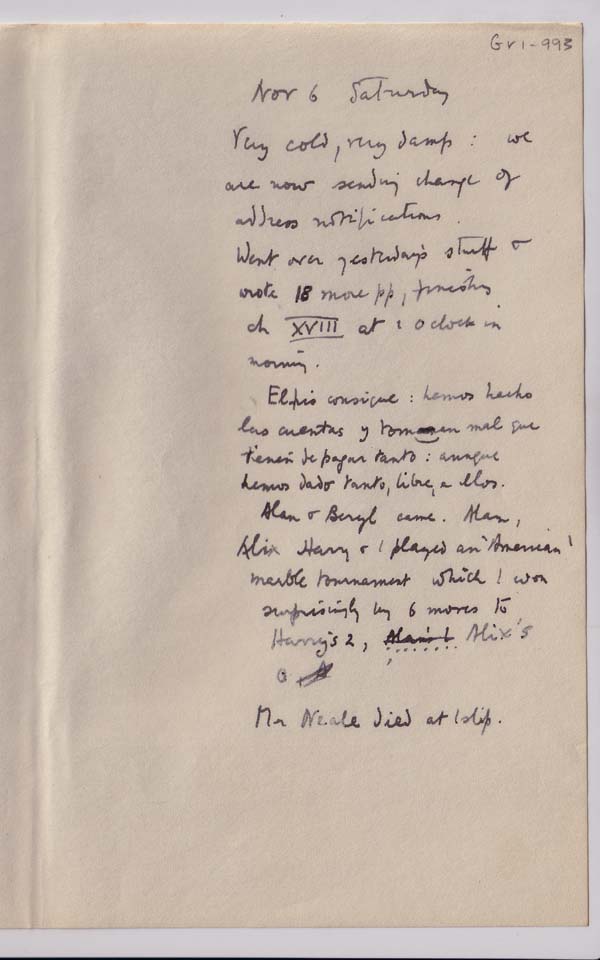 Gv1-993
Nov 6 Saturday
Very cold, very damp : we
are now sending change of
address notifications.
Went over yesterday's stuff &
wrote 18 more pp, finishing
ch XVIII at 1 o clock in
morning.
Elfrio consigue : hemos hecho
las cuentas y toman mal que
tienen de pagar tanto : aunque
hemos dado tanto, libre, a ellos.
Alan & Beryl came. Alan,
Alix Harry & I played an 'American'
marble tournament which I won
surprisingly by 6 moves to
Harry's 2, Alan's 1 Alix's
0
Mr Neale died at Islip.